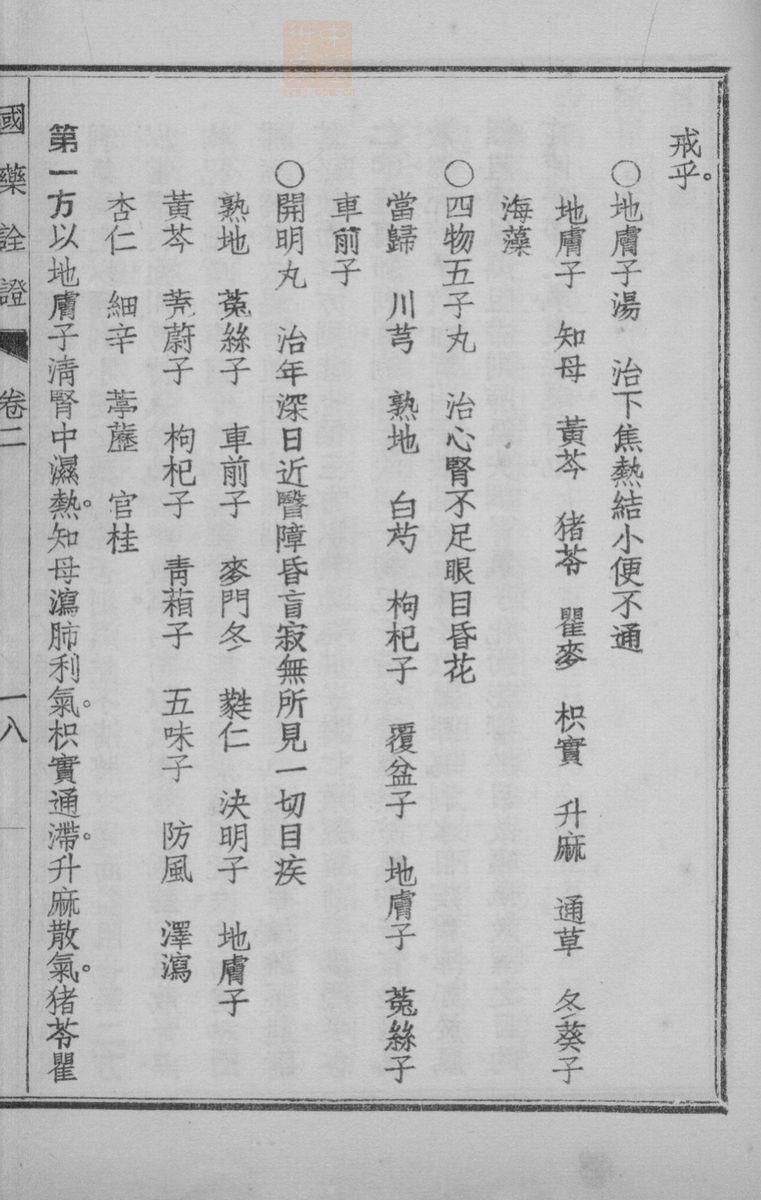 戒乎。
○地膚子湯　治下焦熱結小便不通
地膚子　知母　黃芩　猪苓　瞿麥　枳實　升麻　通草　冬葵子
海藻
○四物五子丸　治心腎不足眼目昏花
當歸　川芎　熟地　白芍　枸杞子　覆盆子　地膚子　菟絲子
車前子
○開明丸　治年深日近瞖障昏盲寂無所見一切目疾
熟地　菟絲子　車前子　麥門冬　蕤仁　決明子　地膚子
黃芩　茺蔚子　枸杞子　靑葙子　五味子　防風　澤瀉
杏仁　細辛　葶藶　官桂
第一方以地膚子淸腎中濕熱。知母瀉肺利氣。枳實通滯。升麻散氣。猪苓瞿
國藥詮證　卷二　一八